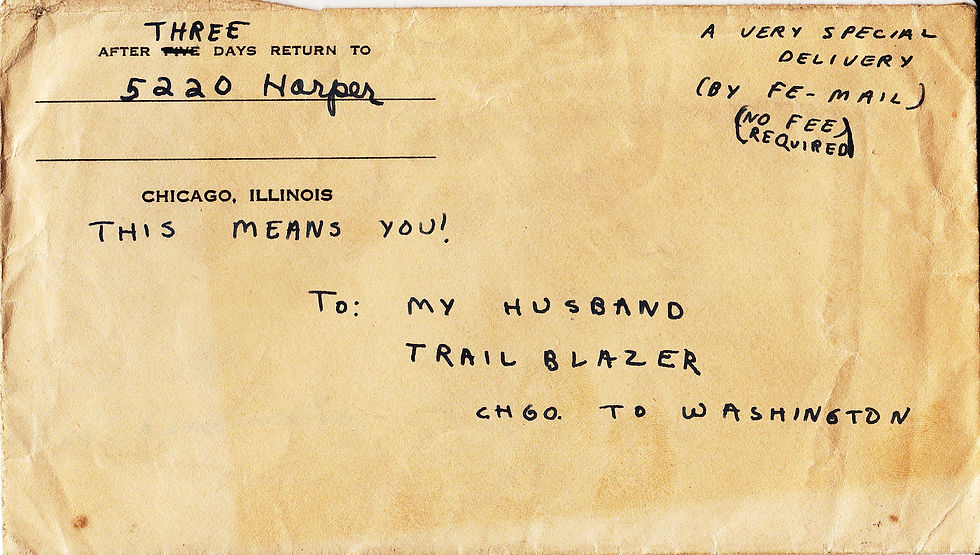 THREE
AFTER FIVE DAYS RETURN TO
5220 Harper
CHICAGO, ILLINOIS
THIS MEANS YOU!
A VERY SPECIAL
DELIVERY
(BY FE-MAIL)
(NO FEE)
(REQUIRED)
TO: MY HUSBAND
TRAIL BLAZER
CHGO. TO WASHINGTON